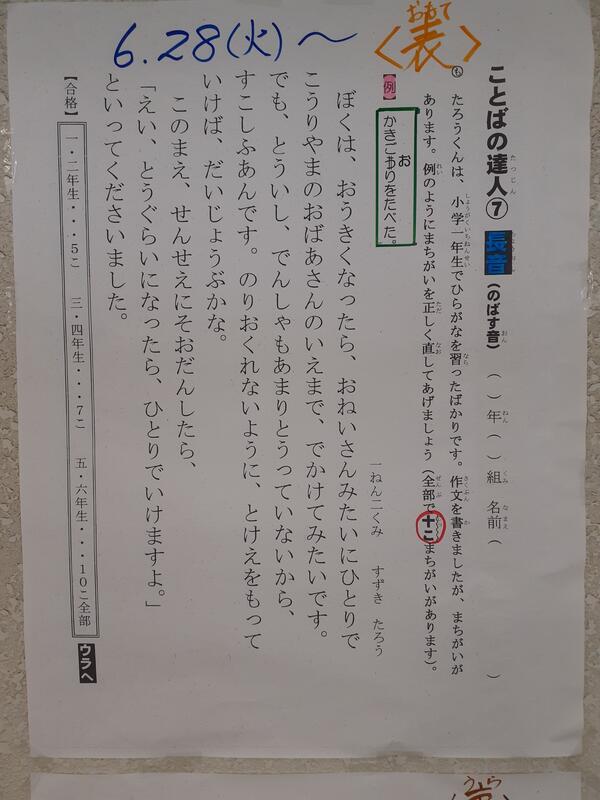 6.28(火)〜
〈表〉
おもて
ことばの達人⑦ 長音 (のばす音) ( )年( )組 名前( )
も たろうくんは、小学一年生でひらがなを習ったばかりです。作文を書きましたが、まちがいが
あります。例のようにまちがいを正しく直してあげましょう(全部で十こまちがいがあります)。
【例】
かきごうりをたべた。
お
一ねん二くみ すずき たろう
ぼくは、おうきくなったら、おねいさんみたいにひとりで
こうりやまのおばあさんのいえまで、でかけてみたいです。
でも、とういし、でんしゃもあまりとうっていないから、
すこしふあんです。のりおくれないように、とけえをもって
いけば、だいじょうぶかな。
このまえ、せんせえにそおだんしたら、
「えい、とうぐらいになったら、ひとりでいけますよ。」
といってくださいました。
【合格】
一・二年生・・・5こ 三・四年生・・・7こ 五・六年生・・・・10こ全部
ウラへ
うら